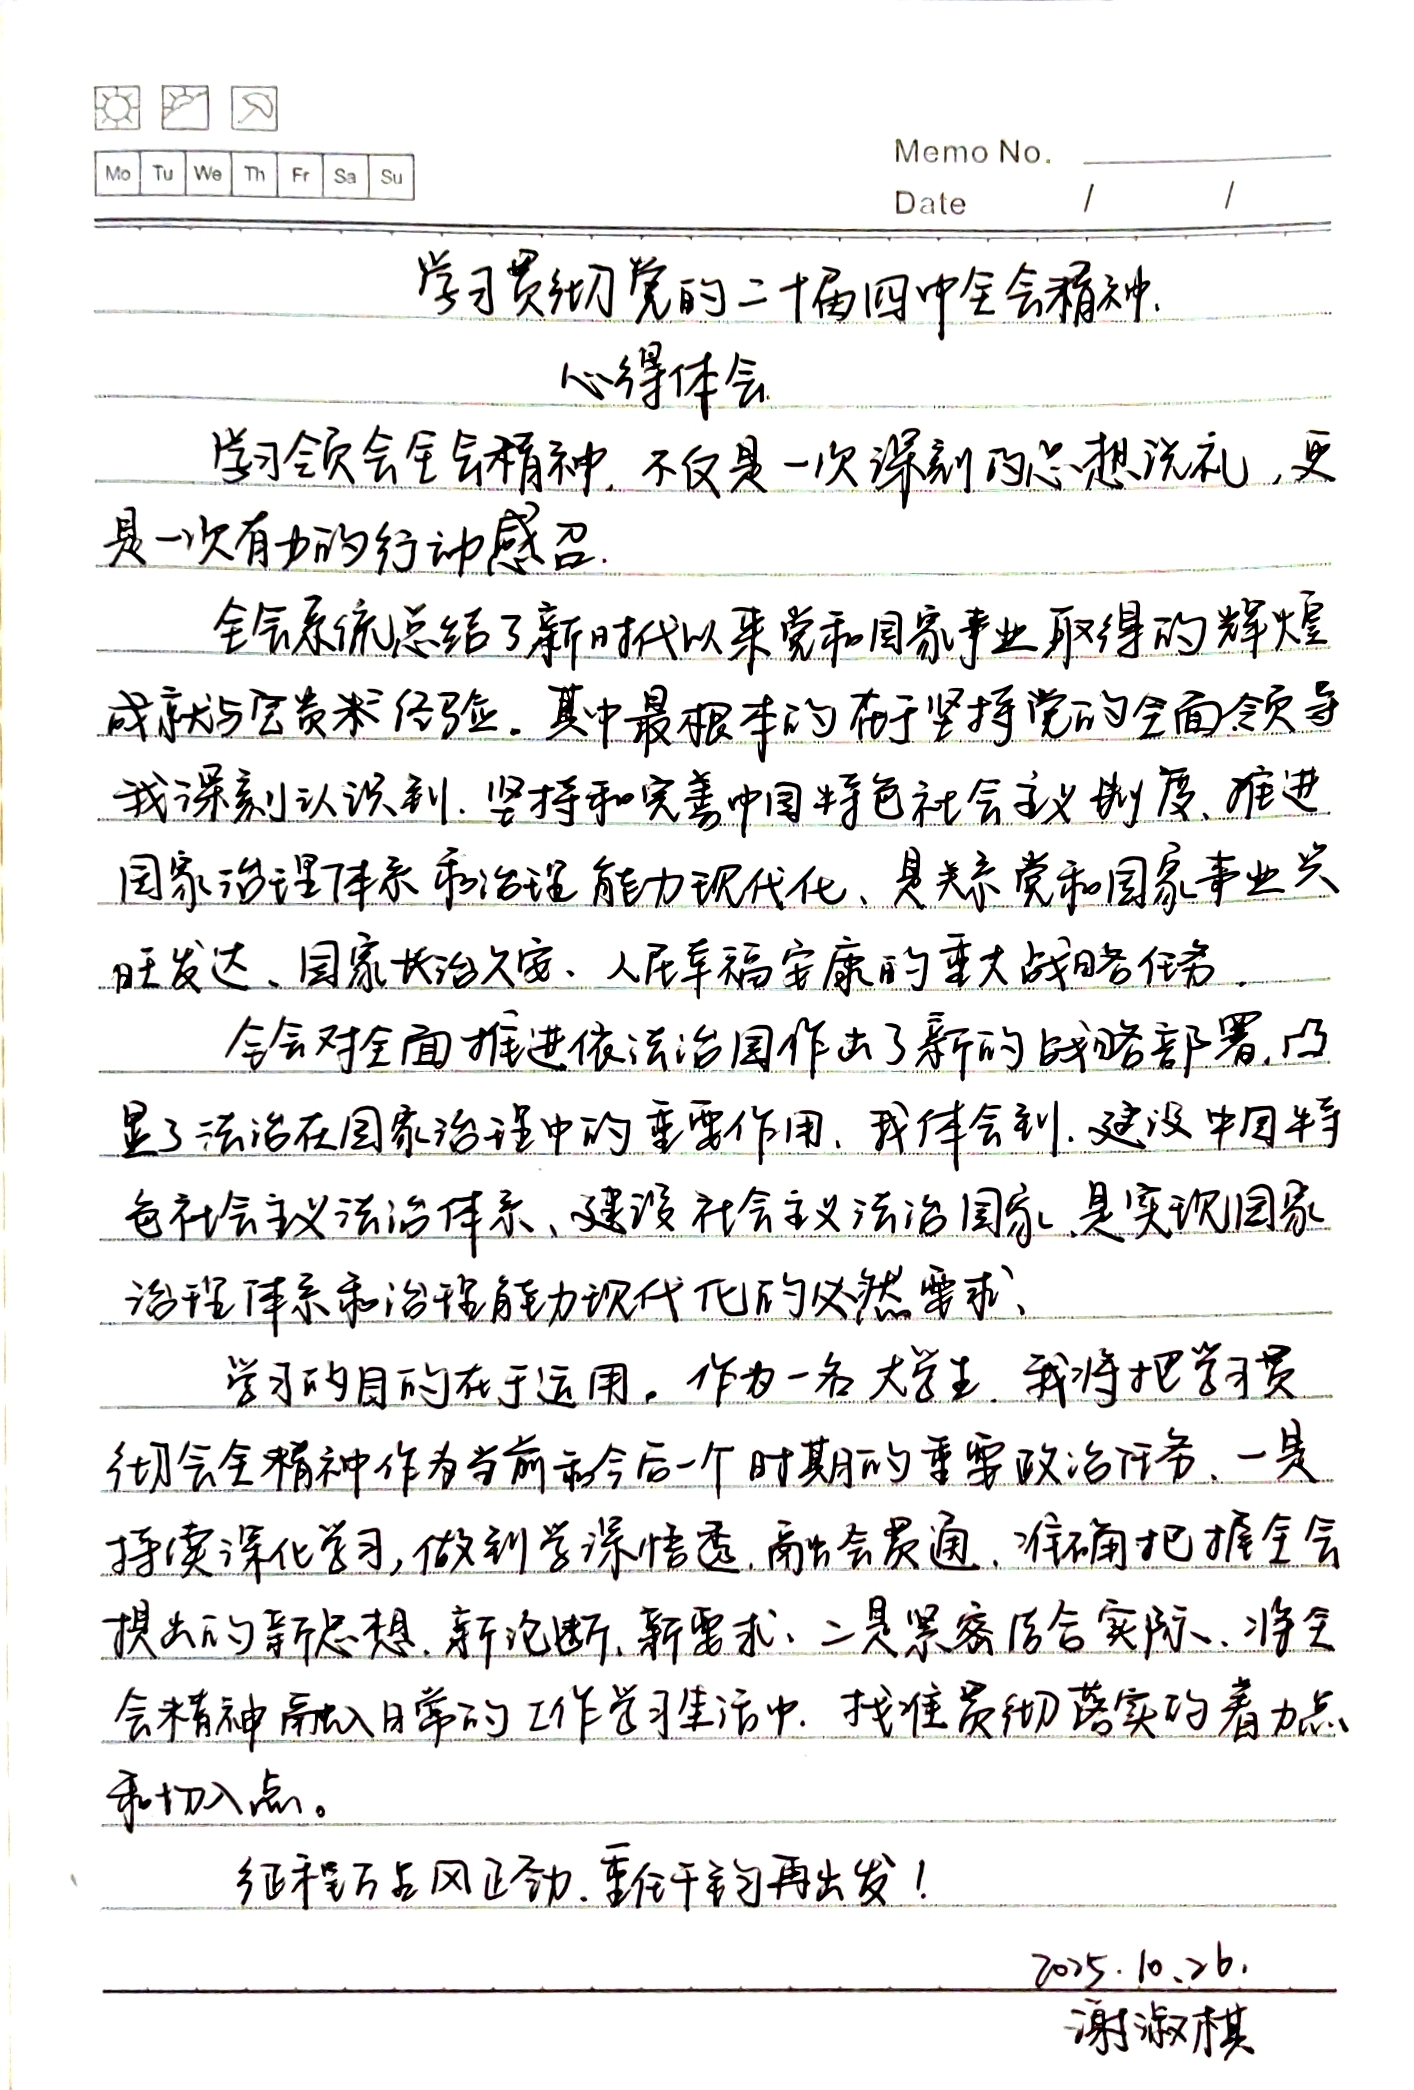 Mo Tu We Th Fr Sa Su
Memo No.
Date / /
学习贯彻党的二十届四中全会精神.
心得体会.
学习领会全会精神, 不仅是一次深刻的思想洗礼,更
是一次有力的行动感召.
全会系统总结了新时代以来党和国家事业取得的辉煌
成就与宝贵经验。其中最根本的在于坚持党的全面领导
我深刻认识到、坚持和完善中国特色社会主义制度、推进
国家治理体系和治理能力现代化、是关系党和国家事业兴
旺发达、国家长治久安、人民幸福安康的重大战略任务.
全会对全面推进依法治国作出了新的战略部署,凸
显了法治在国家治理中的重要作用、我体会到、建设中国特
色社会主义法治体系、建设社会主义法治国家、是实现国家
治理体系和治理能力现代化的必然要求、
学习的目的在于运用。作为一名大学生, 我将把学习贯
彻会全精神作为当前和今后一个时期的重要政治任务、一是
持续深化学习,做到学深悟透,融会贯通、准确把握全会
提出的新思想、新论断、新要求、二是紧密结合实际、将全
会精神融入日常的工作学习生活中, 找准贯彻落实的着力点
和切入点。
征程万里风正劲、重任千钧再出发!
2025.10.26.
谢淑棋